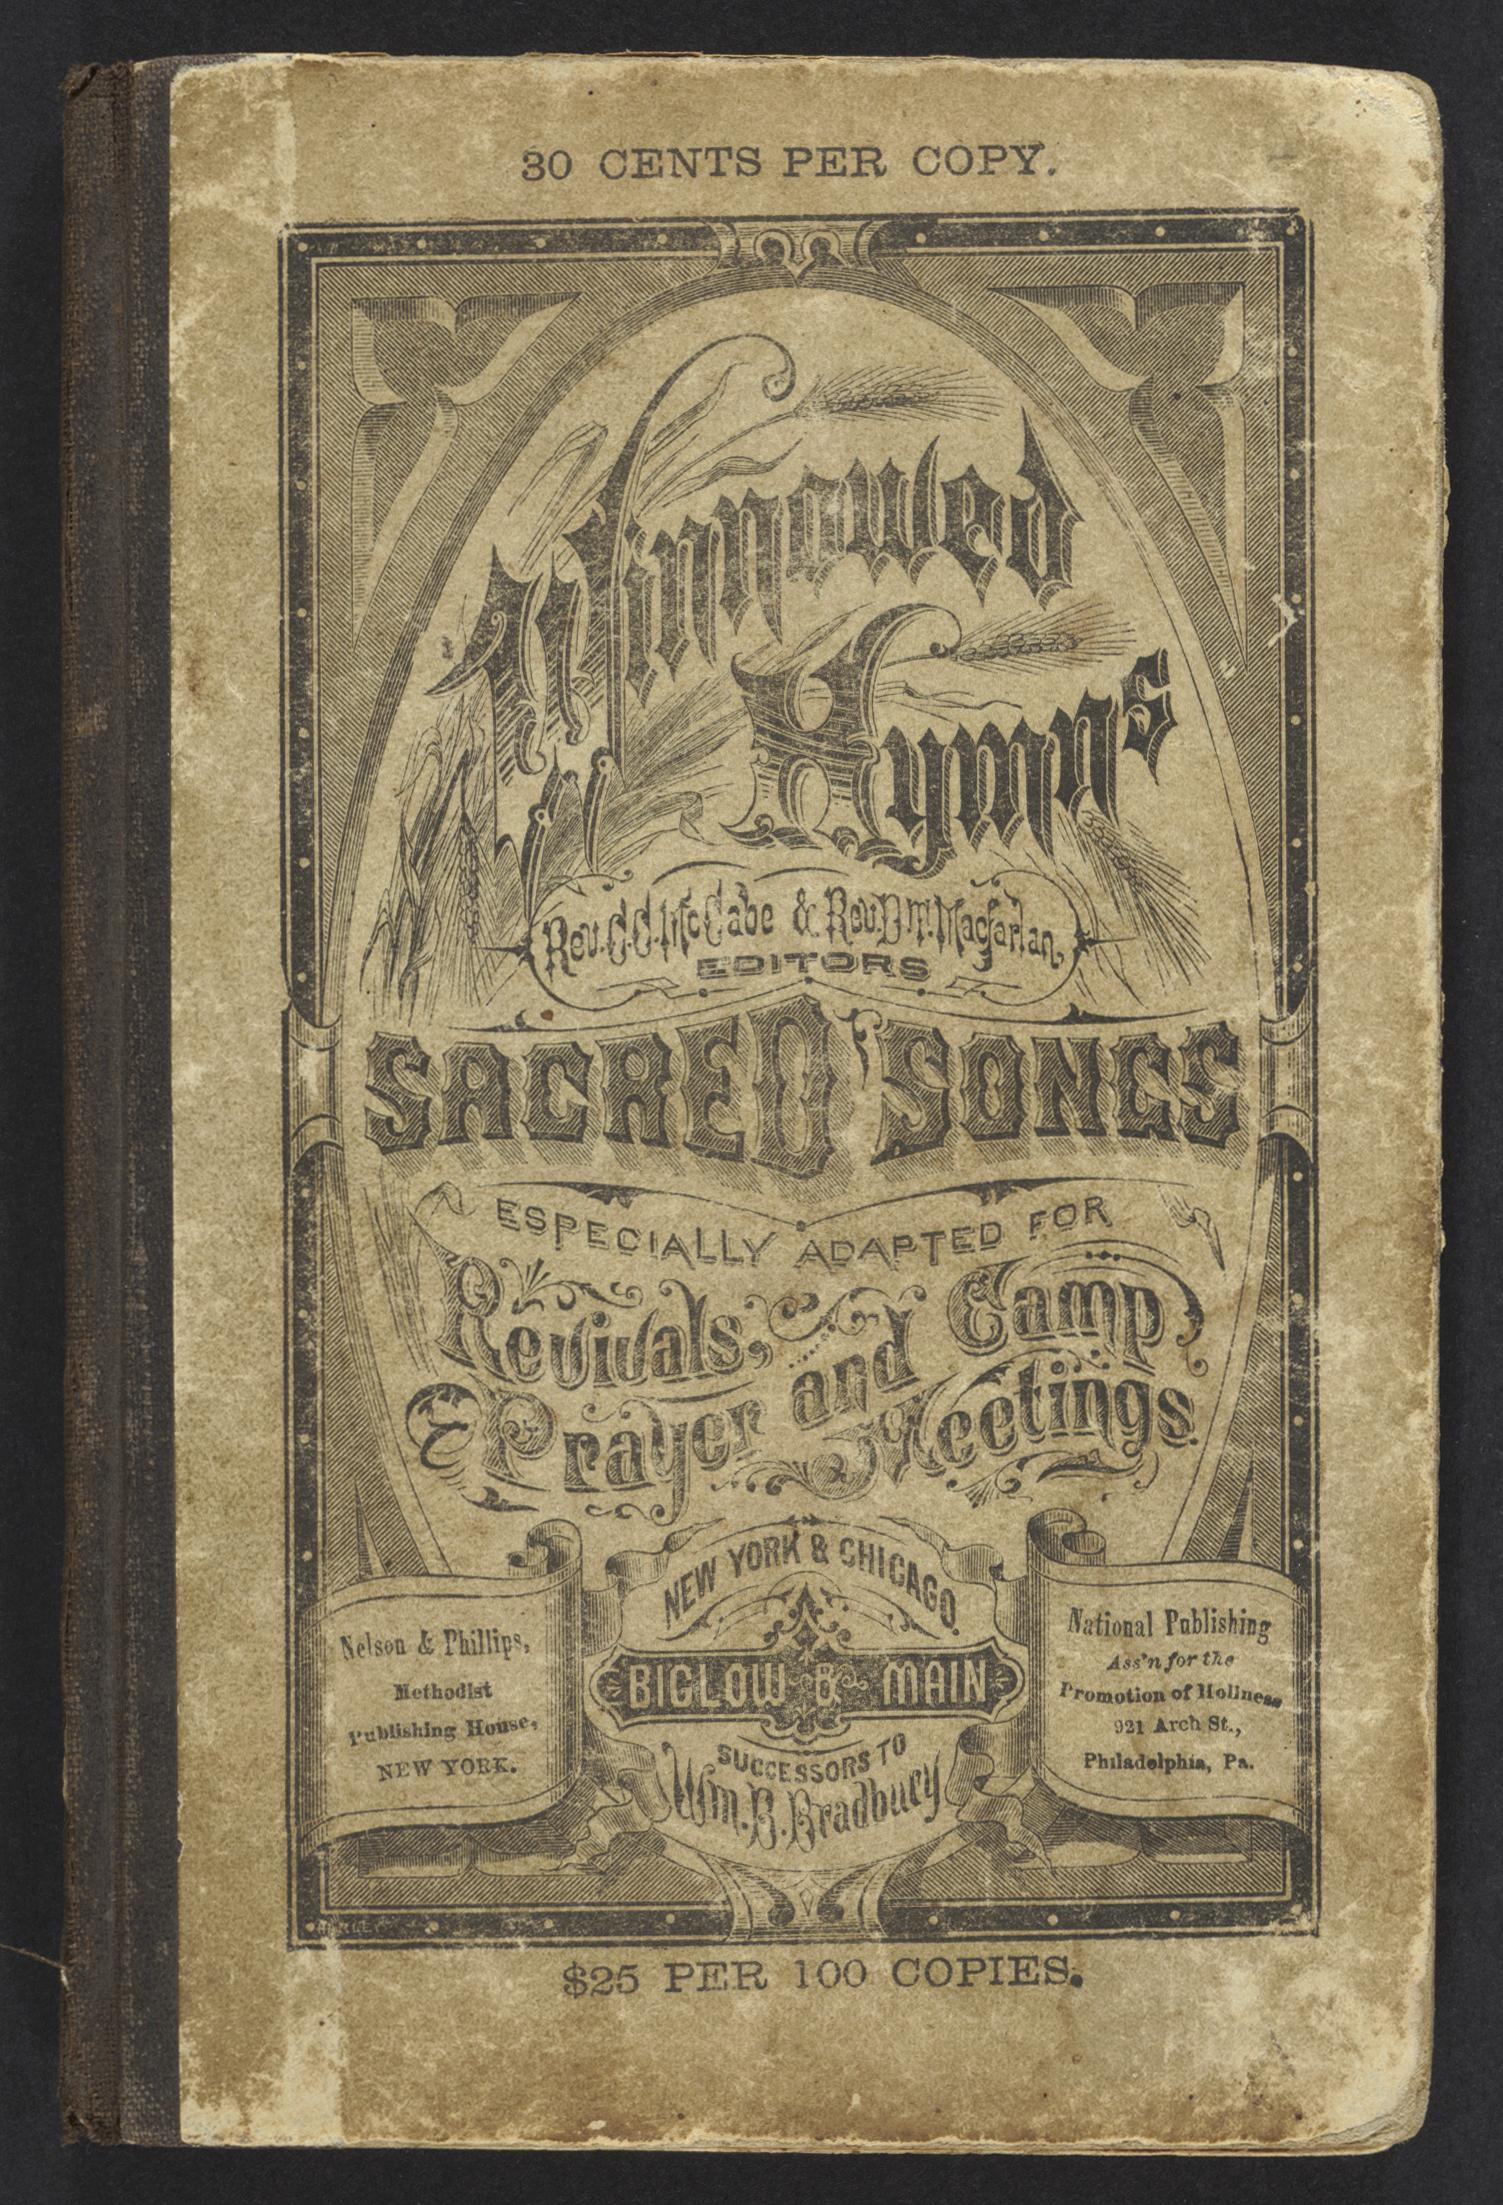 30 CENTS PER COPY.
Winnowed
Hymns
Rev. C. C. McCabe & Rev. D. T. Macfarlan,
EDITORS
SACRED SONGS
ESPECIALLY ADAPTED FOR
Revivals,
Prayer and Camp
Meetings.
NEW YORK & CHICAGO.
BIGLOW & MAIN
SUCCESSORS TO
Wm. B. Bradbury
Nelson & Phillips,
Methodist
Publishing House,
NEW YORK.
National Publishing
Ass'n for the
Promotion of Holiness
921 Arch St.,
Philadelphia, Pa.
$25 PER 100 COPIES.